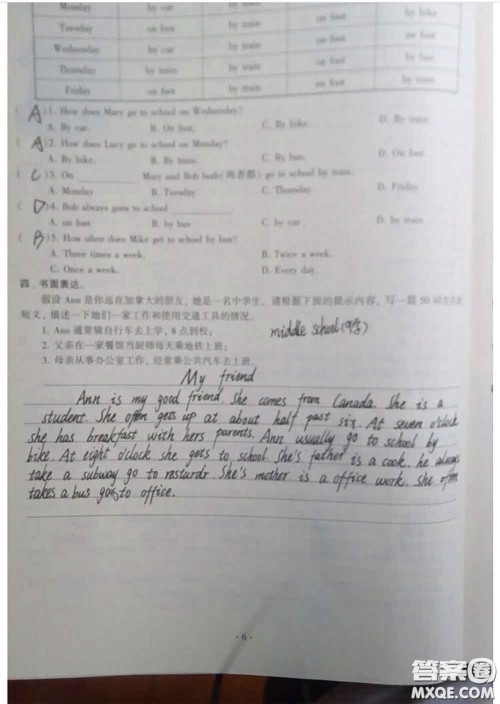 Monday by car by train by bike
Tuesday by car by train on foot on foot
Wednesday by car by train on foot by bike
Thursday by train by train on foot by bus
Friday on foot by train on foot by train
(A)1. How does Mary go to school on Wednesday?
A. By car. B. On foot. C. By bike. D. By train.
(A)2. How does Lucy go to school on Monday?
A. By bike. B. By train. C. By bus. D. On foot.
(C)3. On ________ Mary and Bob both(两者都) go to school by train.
A. Monday B. Tuesday C. Thursday D. Friday
(D)4. Bob always goes to school ________.
A. on foot B. by bus C. by car D. by train
(B)5. How often does Mike get to school by bus?
A. Three times a week. B. Twice a week.
C. Once a week. D. Every day.
四、书面表达。
假设 Ann 是你远在加拿大的朋友，她是一名中学生。请根据下面的提示内容，写一篇 50 词左右的
短文，描述一下她们一家工作和使用交通工具的情况。
1. Ann 通常骑自行车去上学，8 点到校；
middle school(中学)
2. 父亲在一家餐馆当厨师每天乘地铁上班；
3. 母亲从事办公室工作，经常乘公共汽车去上班。
My friend
Ann is my good friend. She comes from Canada. She is a
student. She often gets up at about half past six. At seven o'clock
she has breakfast with hers parents. Ann usually go to school by
bike. At eight o'clock she gets to school. She's father is a cook. he always
take a subway go to resturdr. She's mother is a office work. She often
takes a bus to office.
· 6 ·
答案圈
MXQE.COM